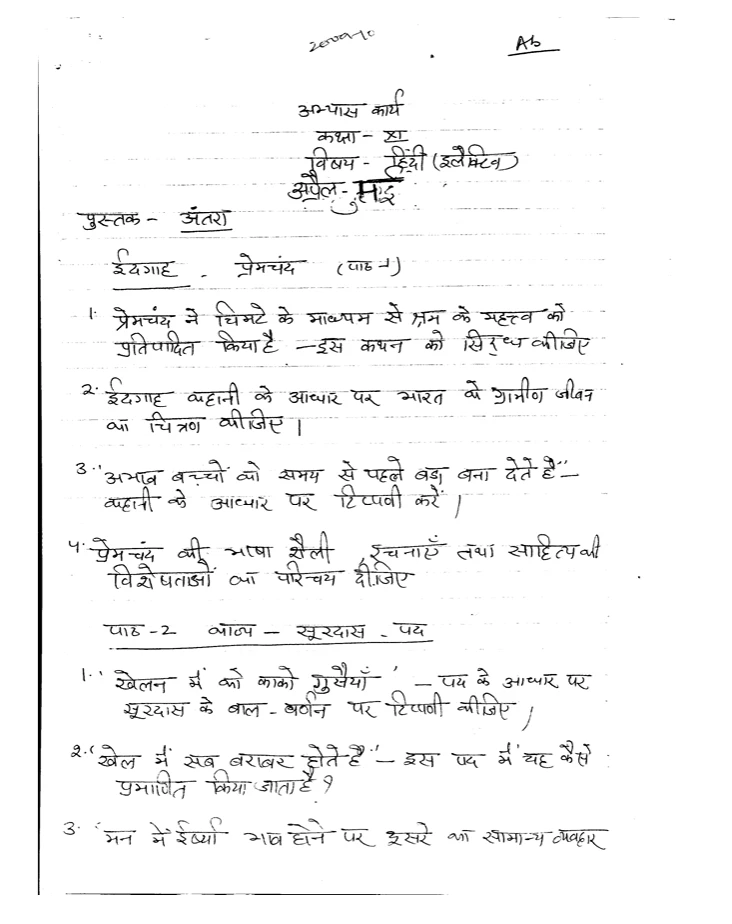 2009-10
Ab
अभ्यास कार्य
कक्षा - XI
विषय - हिंदी (इलैक्टिव)
अप्रैल - मई
पुस्तक - अंतरा
ईदगाह - प्रेमचंद (पाठ-1)
1. प्रेमचंद ने चिमटे के माध्यम से श्रम के महत्त्व को
प्रतिपादित किया है - इस कथन को सिद्ध कीजिए
2. ईदगाह कहानी के आधार पर भारत के ग्रामीण जीवन
का चित्रण कीजिए।
3. "अभाव बच्चों को समय से पहले बड़ा बना देते है" -
कहानी के आधार पर टिप्पणी करें।
4. प्रेमचंद की भाषा शैली, रचनाएँ तथा साहित्य की
विशेषताओं का परिचय दीजिए
पाठ-2 काव्य - सूरदास - पद
1. 'खेलन में को काको गुसैयाँ' - पद के आधार पर
सूरदास के बाल-वर्णन पर टिप्पणी कीजिए।
2. "खेल में सब बराबर होते है" - इस पद में यह कैसे
प्रमाणित किया जाता है?
3. 'मन में ईर्ष्या भाव होने पर दूसरे का सामान्य व्यवहार